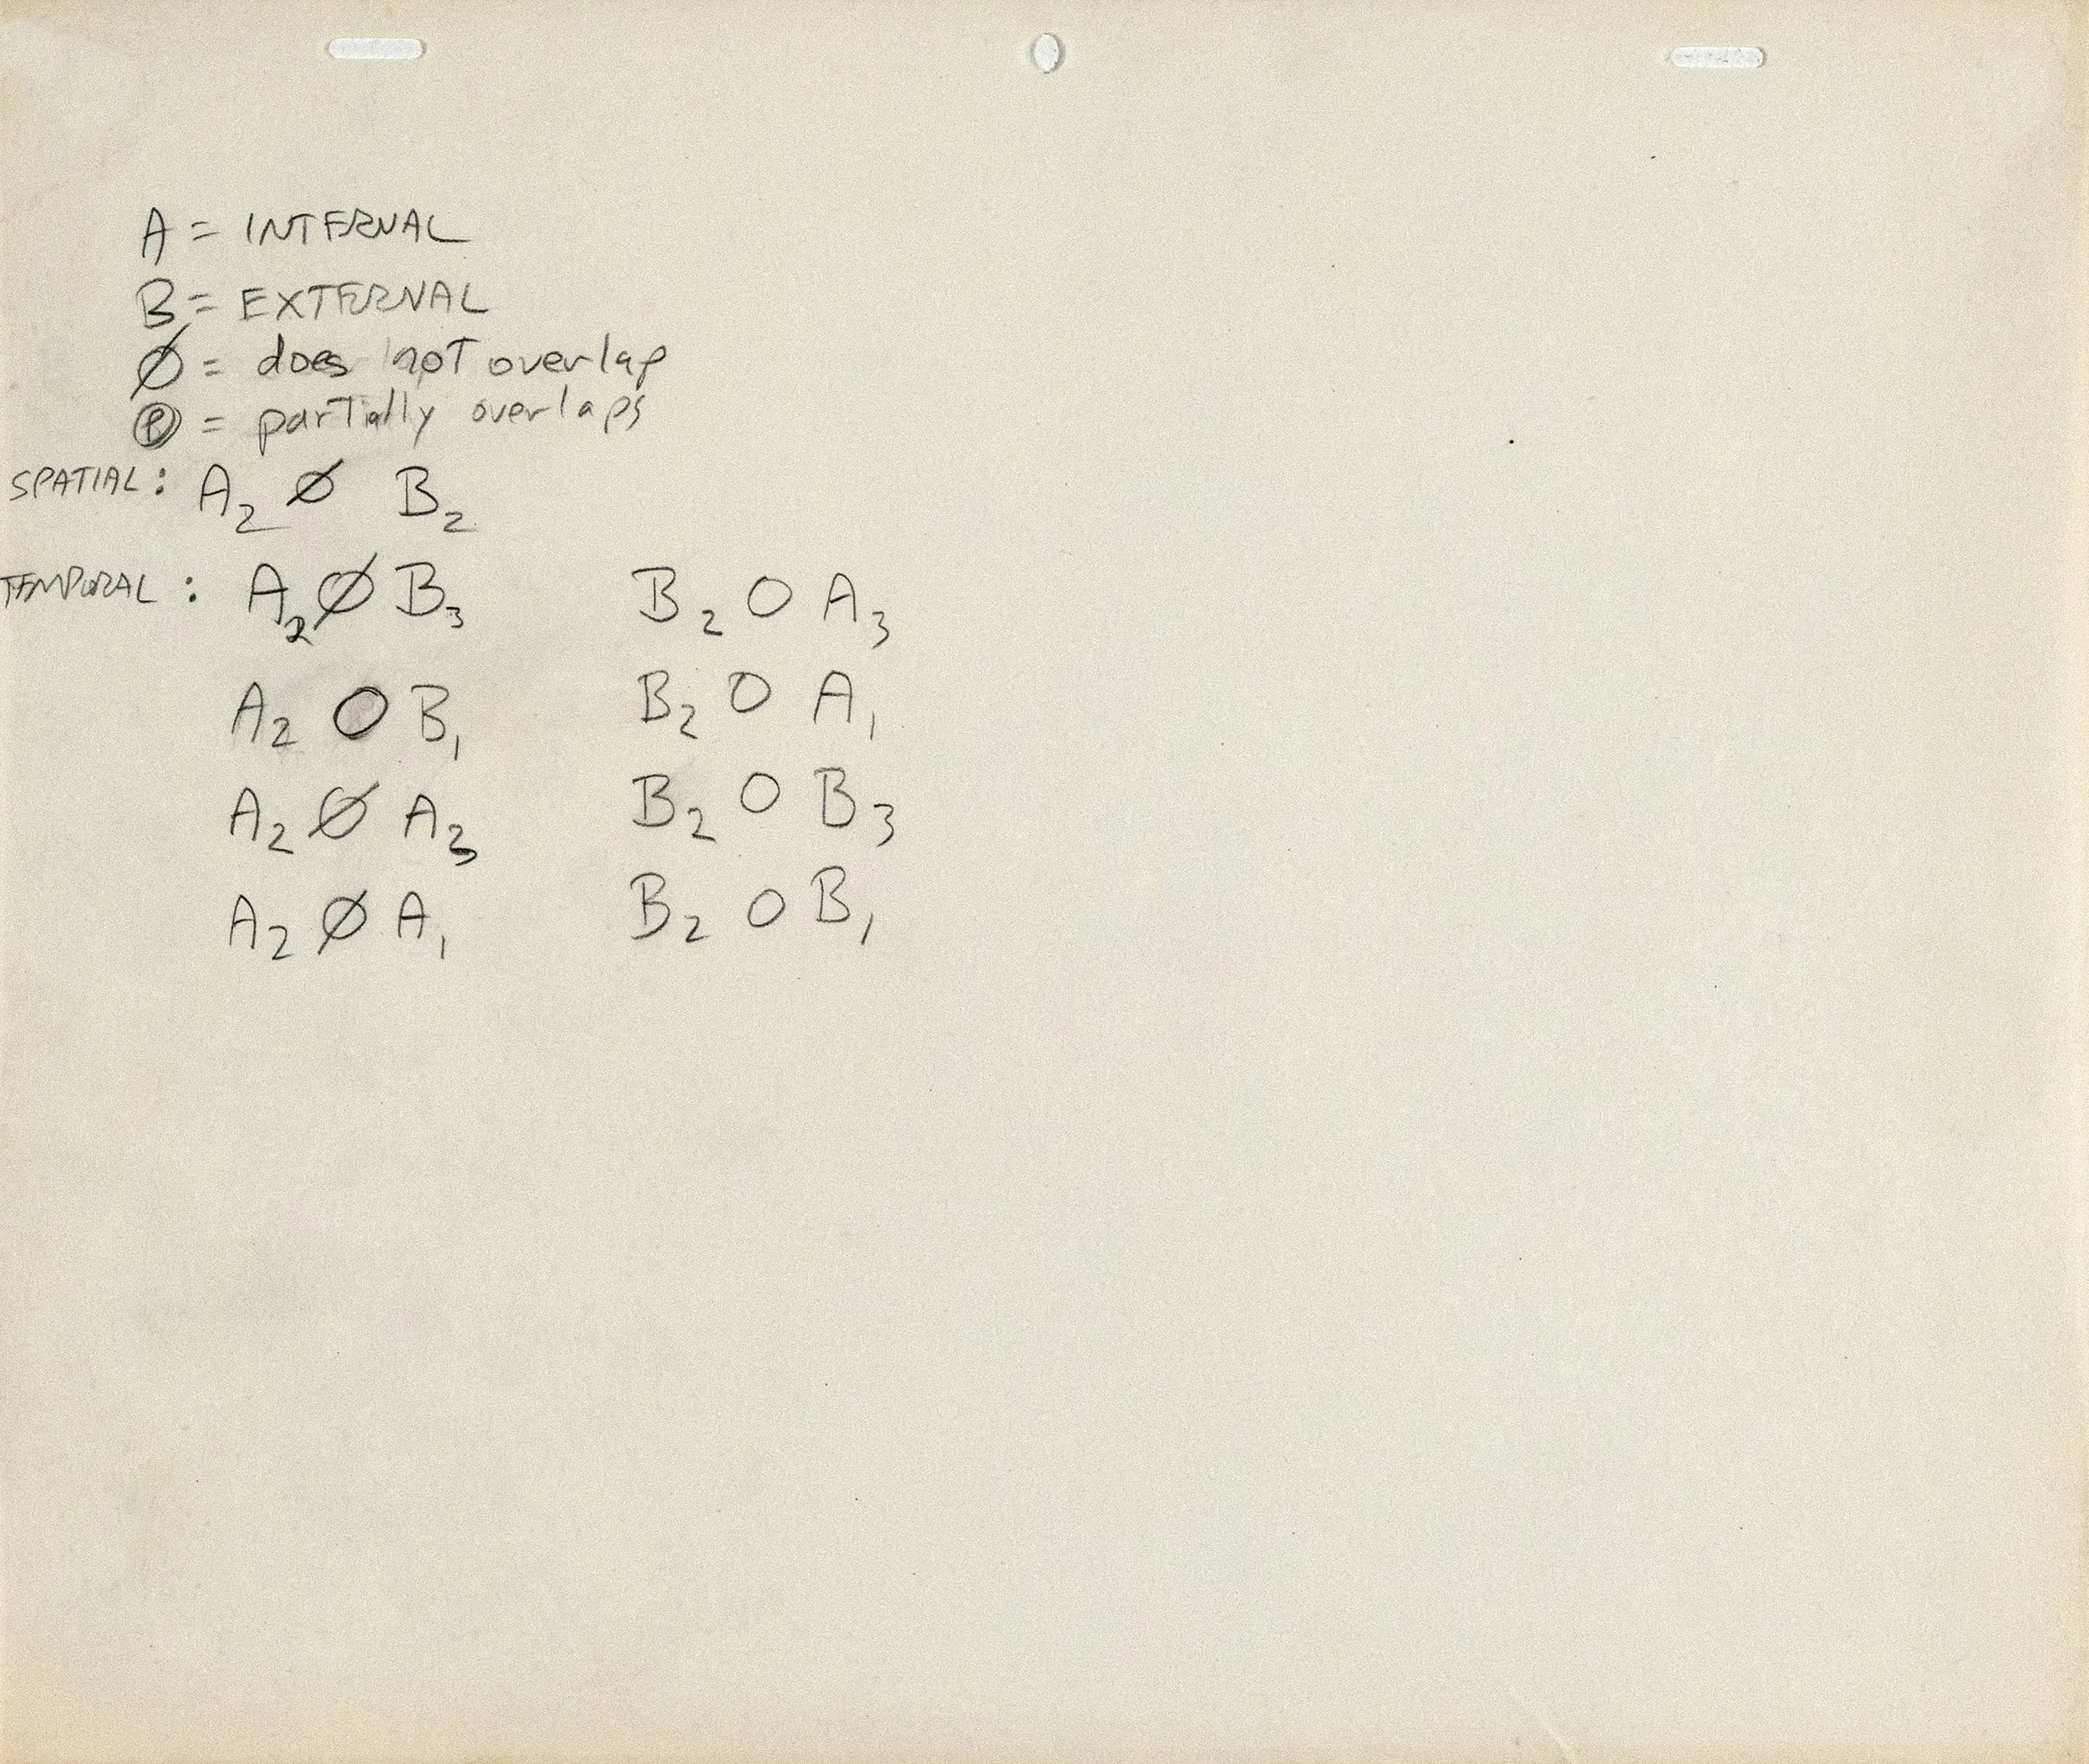 A = INTERNAL
B = EXTERNAL
Ø = does not overlap
Ⓟ = partially overlaps
SPATIAL: A₂ Ø B₂
TEMPORAL: A₂ Ø B₃ B₂ O A₃
A₂ O B₁ B₂ O A₁
A₂ Ø A₃ B₂ O B₃
A₂ Ø A₁ B₂ O B₁